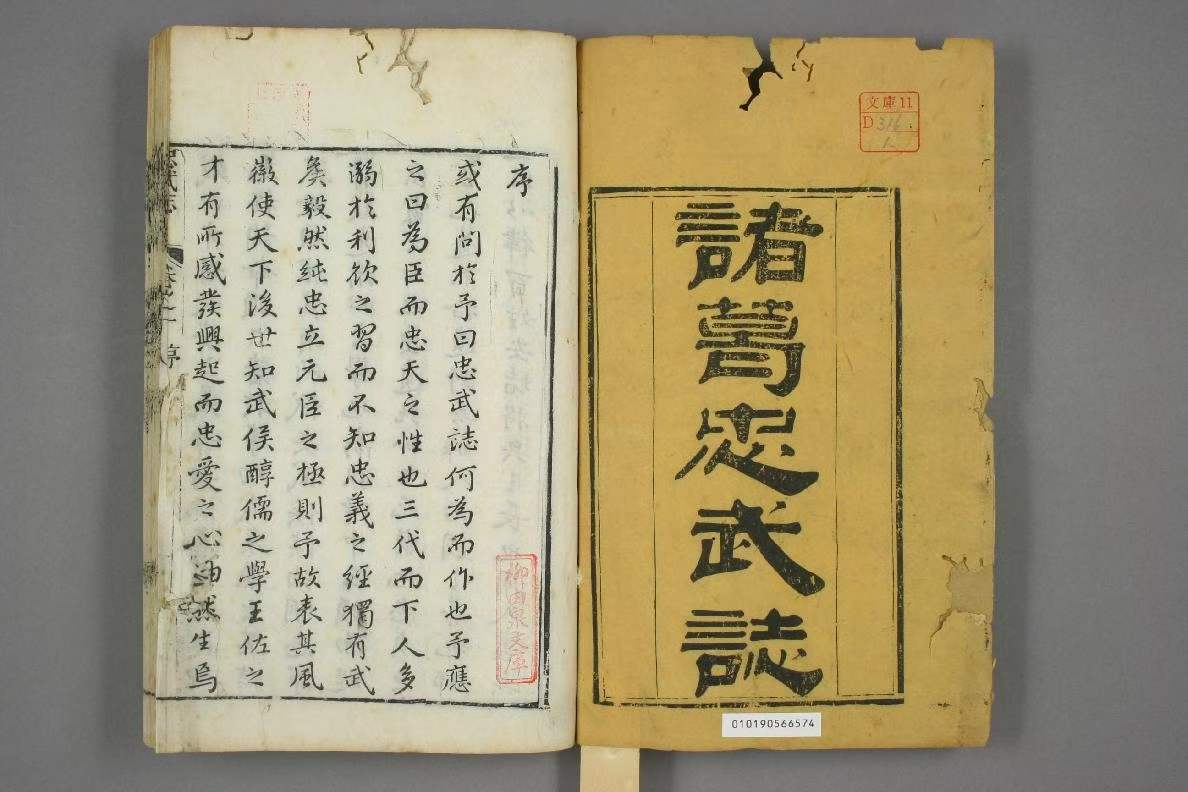 文庫11
D 316
1
諸葛忠武誌
010190566574
序
或有問於予曰忠武誌何為而作也予應
之曰為臣而忠天之性也三代而下人多
溺於利欲之習而不知忠義之經獨有武
矦毅然純忠立元臣之極則予故表其風
徽使天下後世知武侯醇儒之學王佐之
才有所感發興起而忠愛之心油然生焉
柳田泉文庫
忠武誌
卷之一
序